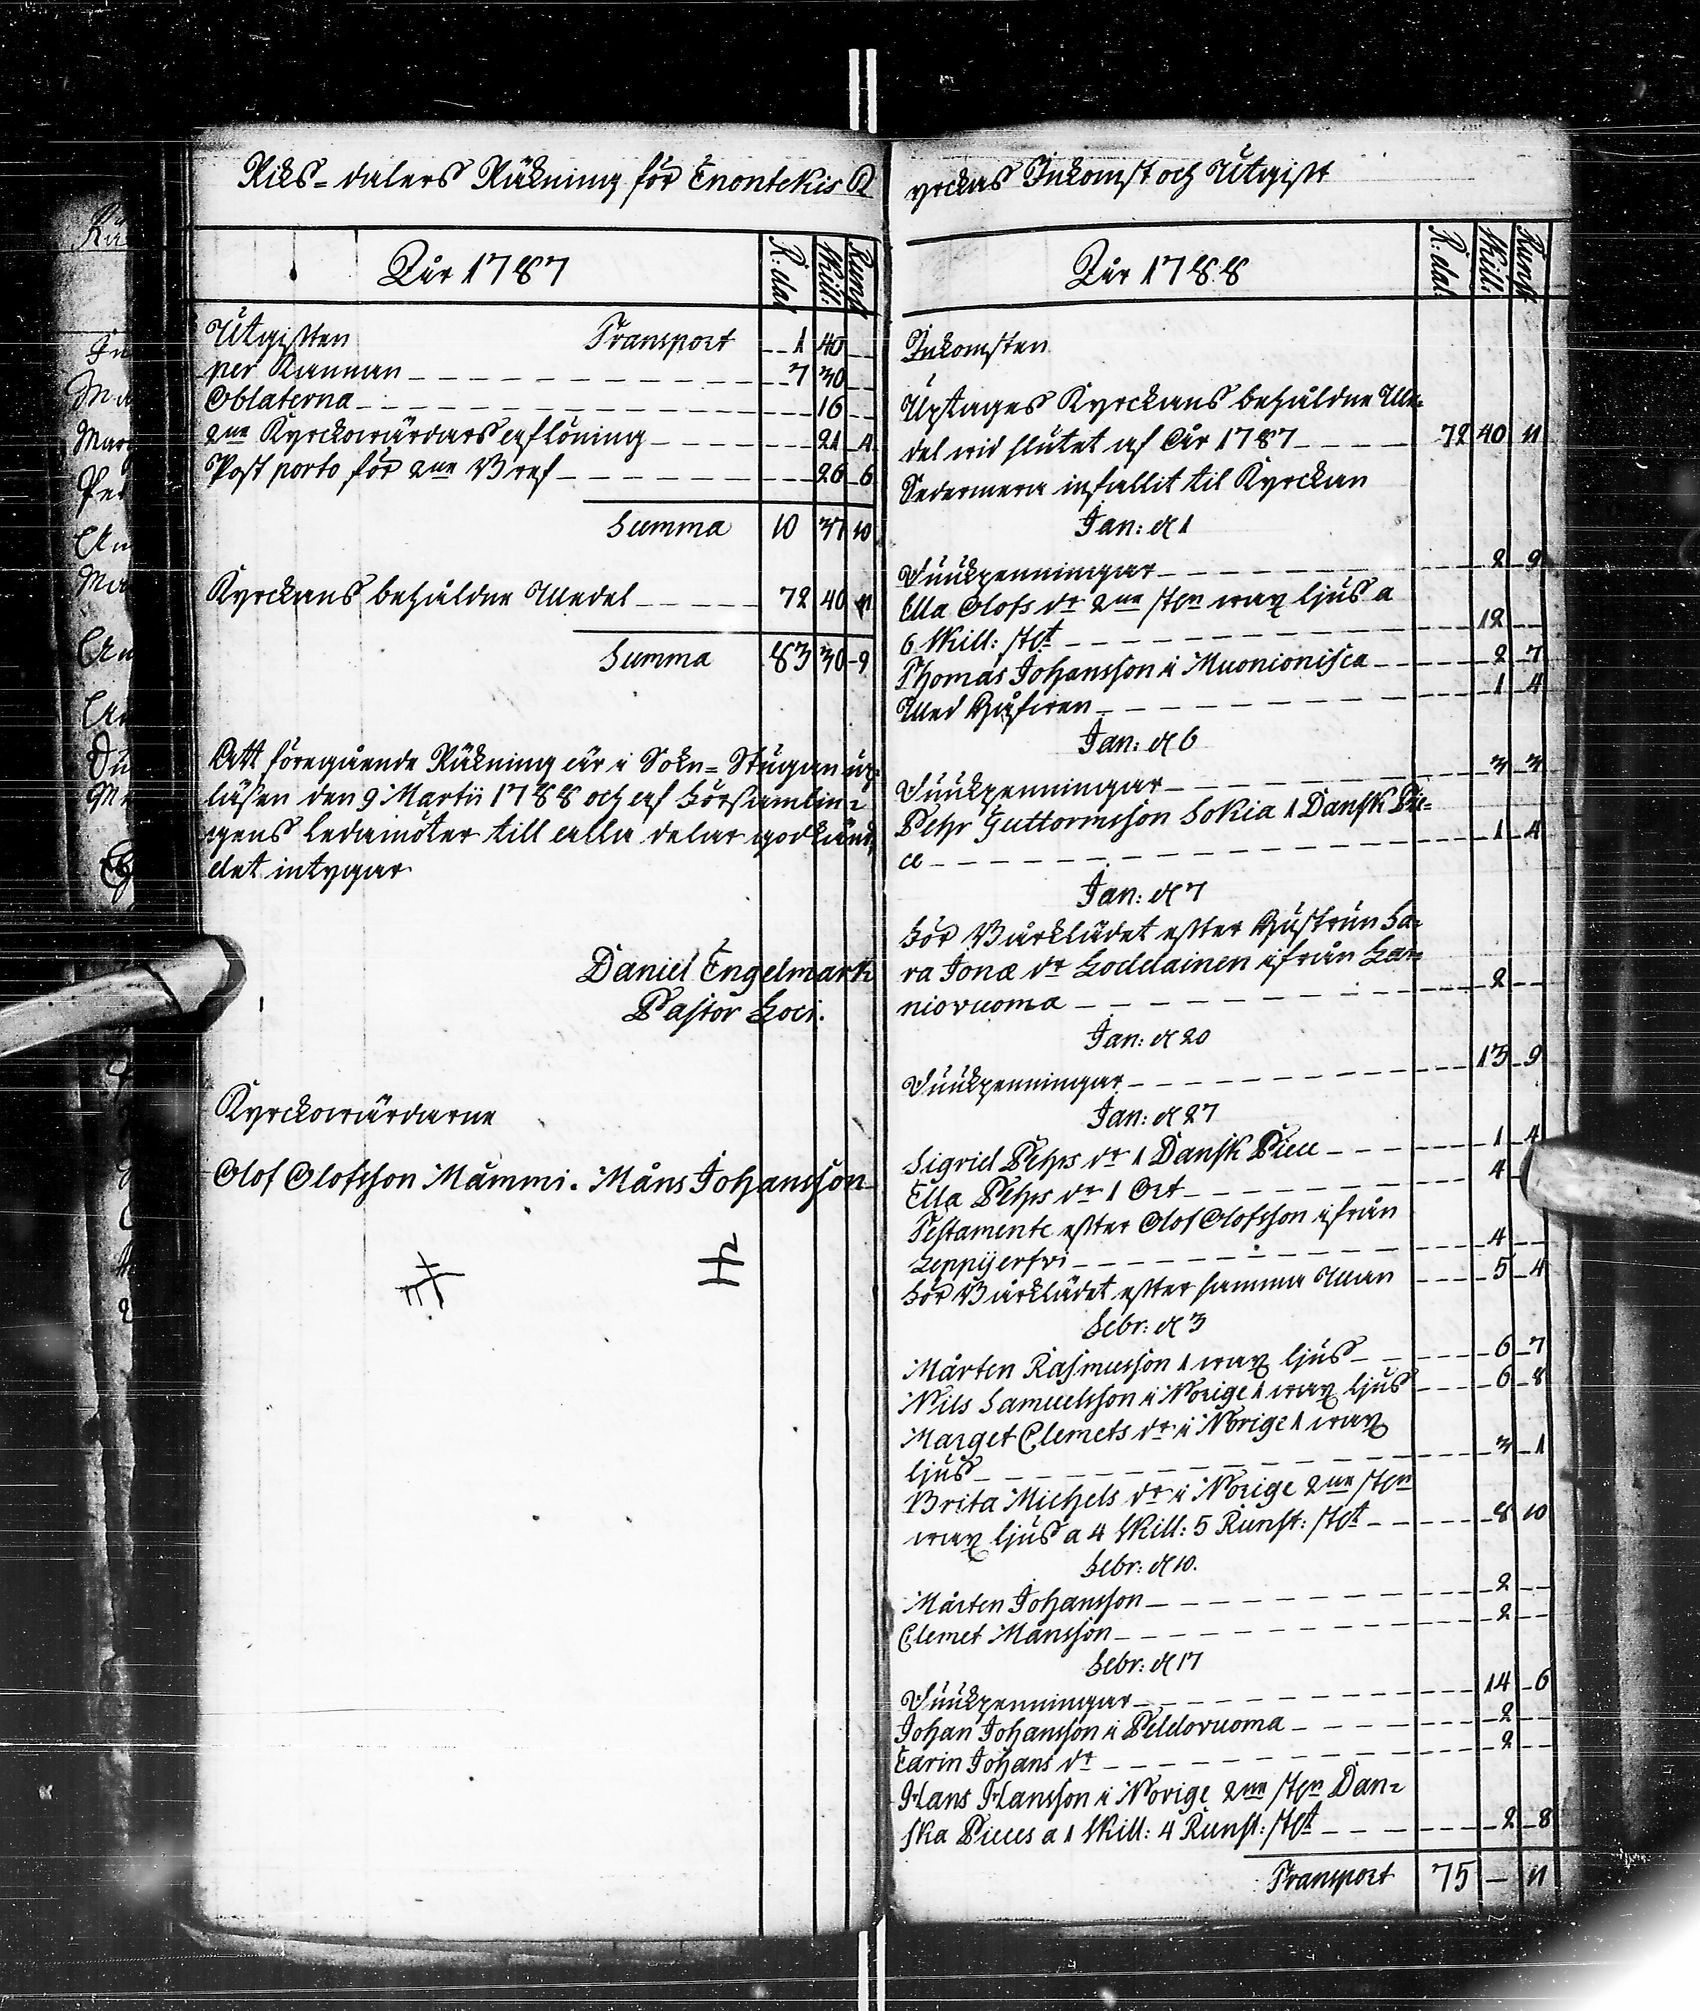 Riks=dalers Räkning för Enontekis K
År 1787
R: dal Skill: Runst
Utgiften Transport 1 40
per Kannan 7 30
Oblaterna 16
2ne Kyrckowärdars aflöning 21 4
Post porto för 2ne Bref 26 6
Summa 10 37 10
Kyrckans behåldne Medel 72 40 11
Summa 83 30 9
Att föregående Räkning är i Sokn=Stugan up=
läsen den 9 Martii 1788 och af Församlin=
gens Ledamöter till alla delar godkänd,
det intygar
Daniel Engelmark
Pastor Loci.
Kyrckowärdarne
Olof Olofsson Mämmi. Måns Johansson
yrckas Inkomst och Utgift
År 1788
R: dal: Skill: Runst
Inkomsten
Uptages Kyrckans behåldne Me=
del wid slutet af År 1787 72 40 11
Sedermera infallit til Kyrckan
Jan: d 1
Siuukpenningar 2 9
Ella Olofs dr 2ne st:n wax ljus a
6 Skill: st:t 12
Thomas Johansson i Muonionisca 2 7
Med Håfwen 1 4
Jan: d 6
Siuukpenningar 3 3
Pehr Guttormsson Sokia 1 Dansk Pie=
ce 1 4
Jan: d 7
För Bårklädet efter Hustrun Sa=
ra Jonæ dr Lodelainen ifrån Lai=
niovuoma 2
Jan: d 20
Siuukpenningar 13 9
Jan: d 27
Sigrid Pehrs dr 1 Dansk Piece 1 4
Ella Pehrs dr 1 Ort 4
Testamente efter Olof Olofsson ifrån
Leppijerfvi 4
För Bårklädet efter samma Man 5 4
Febr: d 3
Mårten Rasmusson 1 wax ljus 6 7
Nils Samuelsson i Norige 1 wax ljus 6 8
Marget Clemets dr i Norige 1 wax
ljus 3 1
Brita Michels dr i Norige 2ne st:n
wax ljus a 4 Skill: 5 Runst: st:t 8 10
Febr: d 10.
Mårten Johansson 2
Clemet Månsson 2
Febr: d 17
Siuukpenningar 14 6
Johan Johansson i Peldovuoma 2
Carin Johans dr 2
Hans Hansson i Norige 2ne st:n Dan=
ska Pieces a 1 Skill: 4 Runst: st:t 2 8
Transport 75 — 11